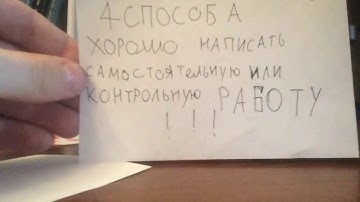 4 СПОСОБА
ХОРОШО НАПИСАТЬ
САМОСТОЯТЕЛЬНУЮ ИЛИ
КОНТРОЛЬНУЮ РАБОТУ
! ! !